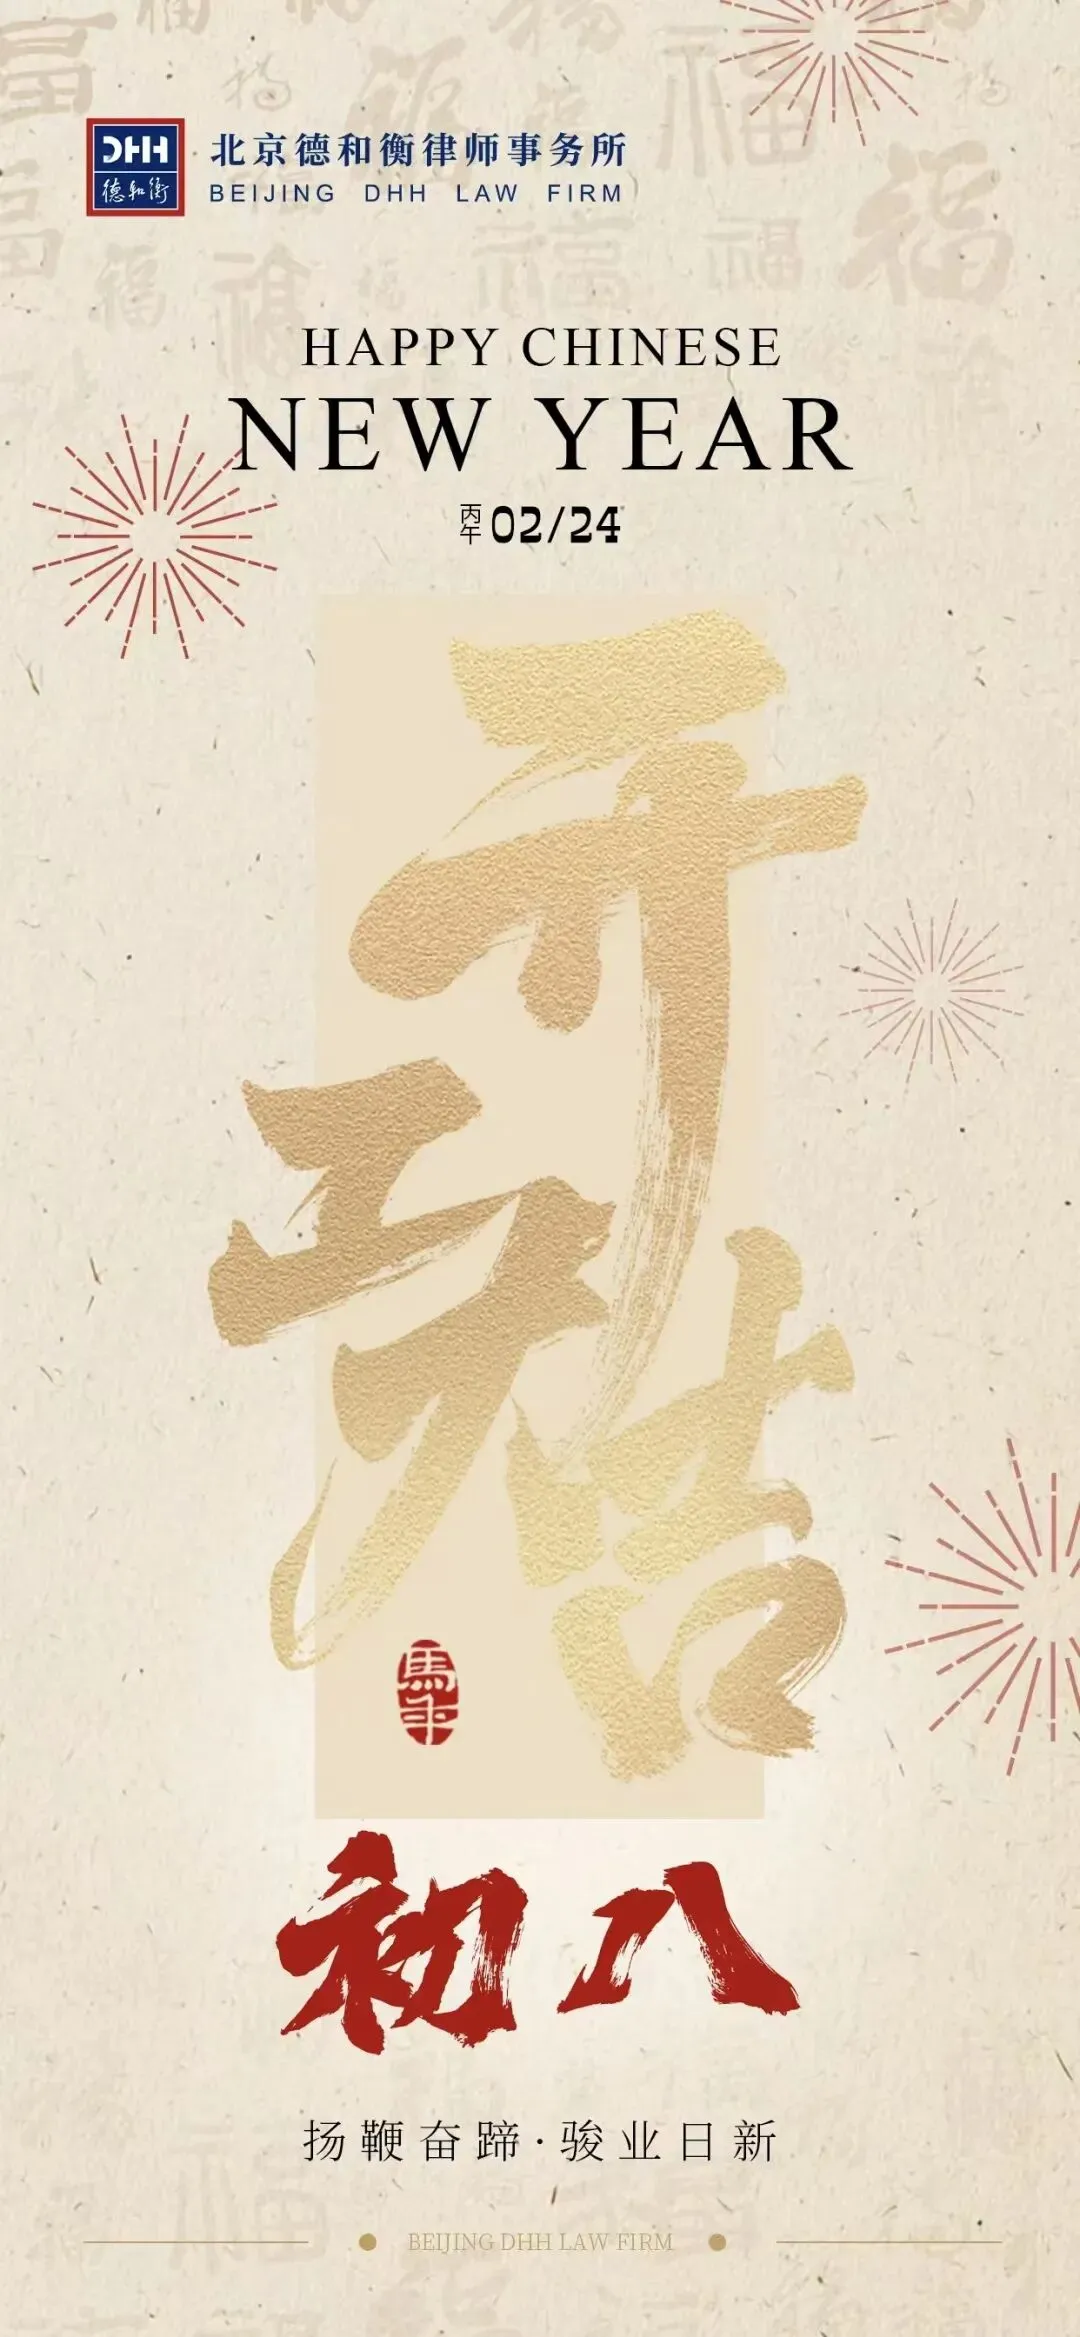 DHH
德和衡
北京德和衡律师事务所
BEIJING DHH LAW FIRM
HAPPY CHINESE
NEW YEAR
丙午 02/24
开工大吉
初八
扬鞭奋蹄·骏业日新
BEIJING DHH LAW FIRM